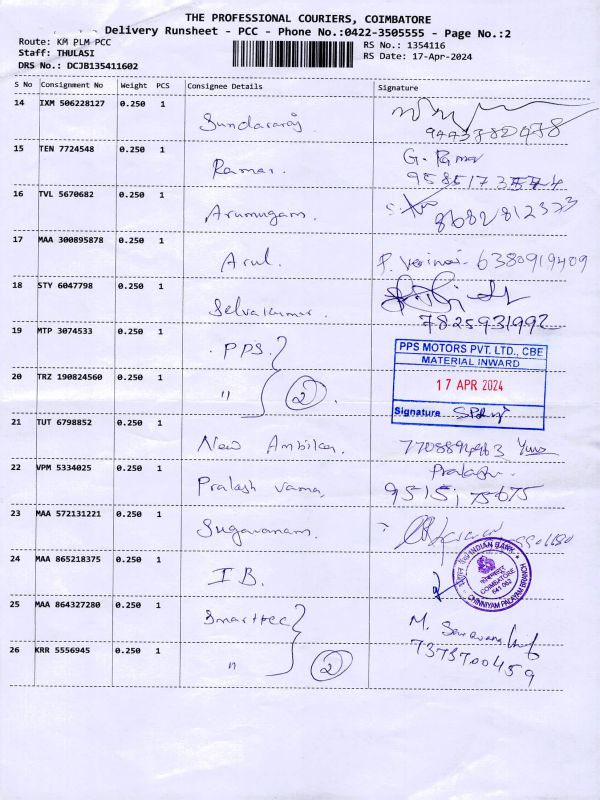 THE PROFESSIONAL COURIERS, COIMBATORE
Delivery Runsheet - PCC - Phone No.:0422-3505555 - Page No.:2
Route: KM PLM PCC
RS No.: 1354116
Staff: THULASI
RS Date: 17-Apr-2024
DRS No.: DCJB135411602
S No Consignment No Weight PCS Consignee Details Signature
14 IXM 506228127 0.250 1
Sundararaj
15 TEN 7724548 0.250 1 G. Ramar
Ramar.
16 TVL 5670682 0.250 1
Arumugam. 8682812373
17 MAA 300895878 0.250 1
Arul. 6380919409
18 STY 6047798 0.250 1
Selvakumar. 7825931992
19 MTP 3074533 0.250 1
PPS.
PPS MOTORS PVT. LTD., CBE
MATERIAL INWARD
17 APR 2024
Signature
20 TRZ 190824560 0.250 1
" 2
21 TUT 6798852 0.250 1
New Ambika.
22 VPM 5334025 0.250 1
Prakash Varma, 9515175675
23 MAA 572131221 0.250 1
Sugavanam.
24 MAA 865218375 0.250 1
I B.
INDIAN BANK
COIMBATORE
641 062
CHINNIYAM PALAYAM BRANCH
25 MAA 864327280 0.250 1
Smarttec M.
7373700459
26 KRR 5556945 0.250 1
" 2